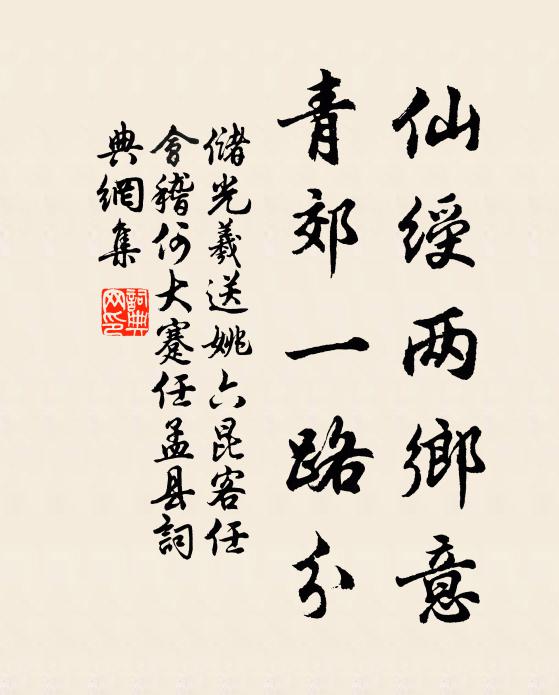 仙綬两鄉意
青郊一路分
儲光羲送姚六昆客任
會稽何大蹇任孟县詞
典網集
詞典网印